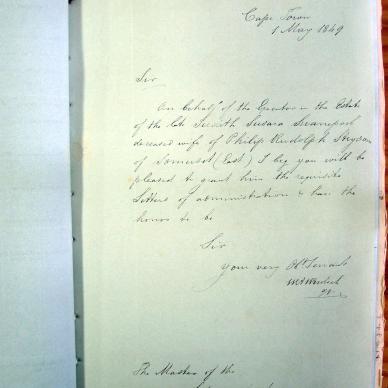 Cape Town
1 May 1849
Sir
On behalf of the Executor in the Estate
of the late Judith Susara Swanepoel
deceased wife of Philip Rudolph
of Somerset (East) I beg you will be
pleased to grant him the requisite
Letters of administration & have the
honor to be
Sir
your very Obt Servant
The Master of the